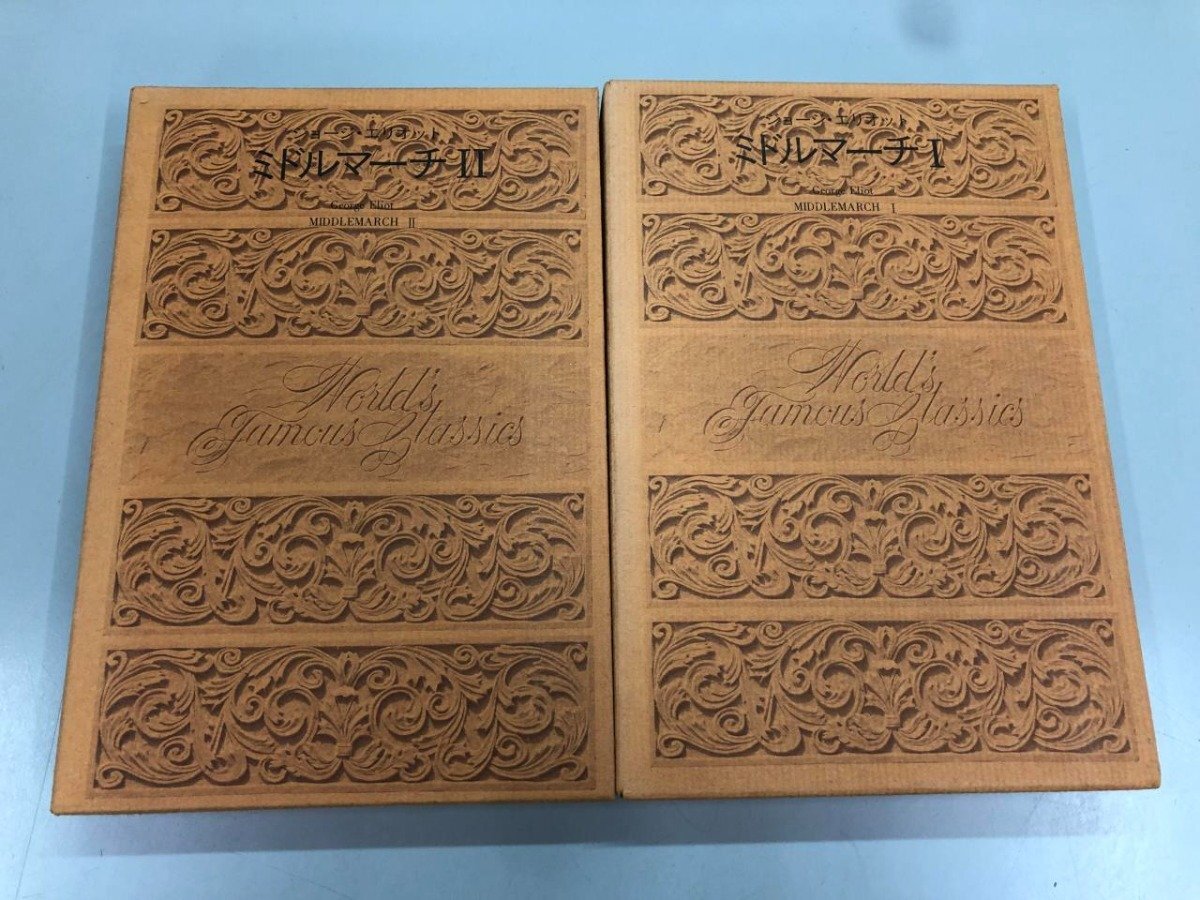 ジョージ・エリオット
ミドルマーチ II
George Eliot
MIDDLEMARCH II
World's
Famous Classics
ジョージ・エリオット
ミドルマーチ I
George Eliot
MIDDLEMARCH I
World's
Famous Classics